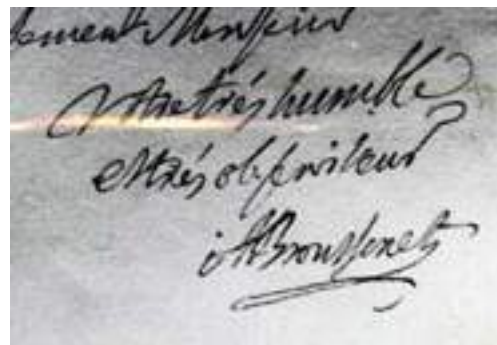 lement Monsieur
Votre très humble
et très obs serviteur
A Broussonet